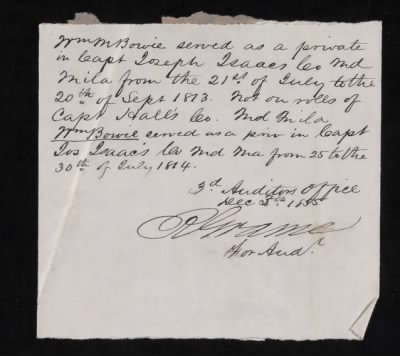 Wm M Bowie served as a private
in Capt Joseph Isaacs Co Md
Mila from the 21st of July to the
20th of Sept 1813. Not on rolls of
Capt Hall's Co. Md Mila
Wm Bowie served as a priv in Capt
Jos Isaac's Co Md Ma from 25 to the
30th of July 1814.
3d Auditors Office
Dec
For Audr